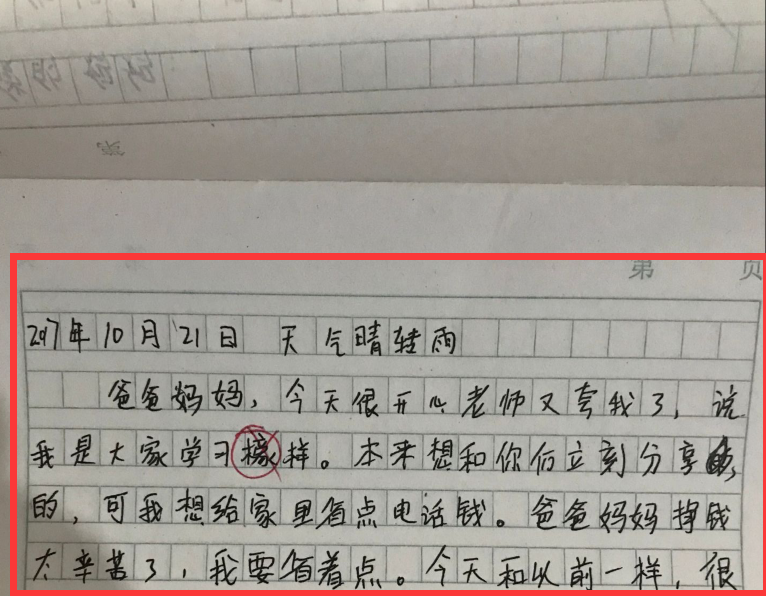 第 页
2017年10月21日 天气晴转雨
爸爸妈妈，今天很开心老师又夸我了，说
我是大家学习檬样。本来想和你们立刻分享
的，可我想给家里省点电话钱。爸爸妈妈挣钱
太辛苦了，我要省着点。今天和以前一样，很